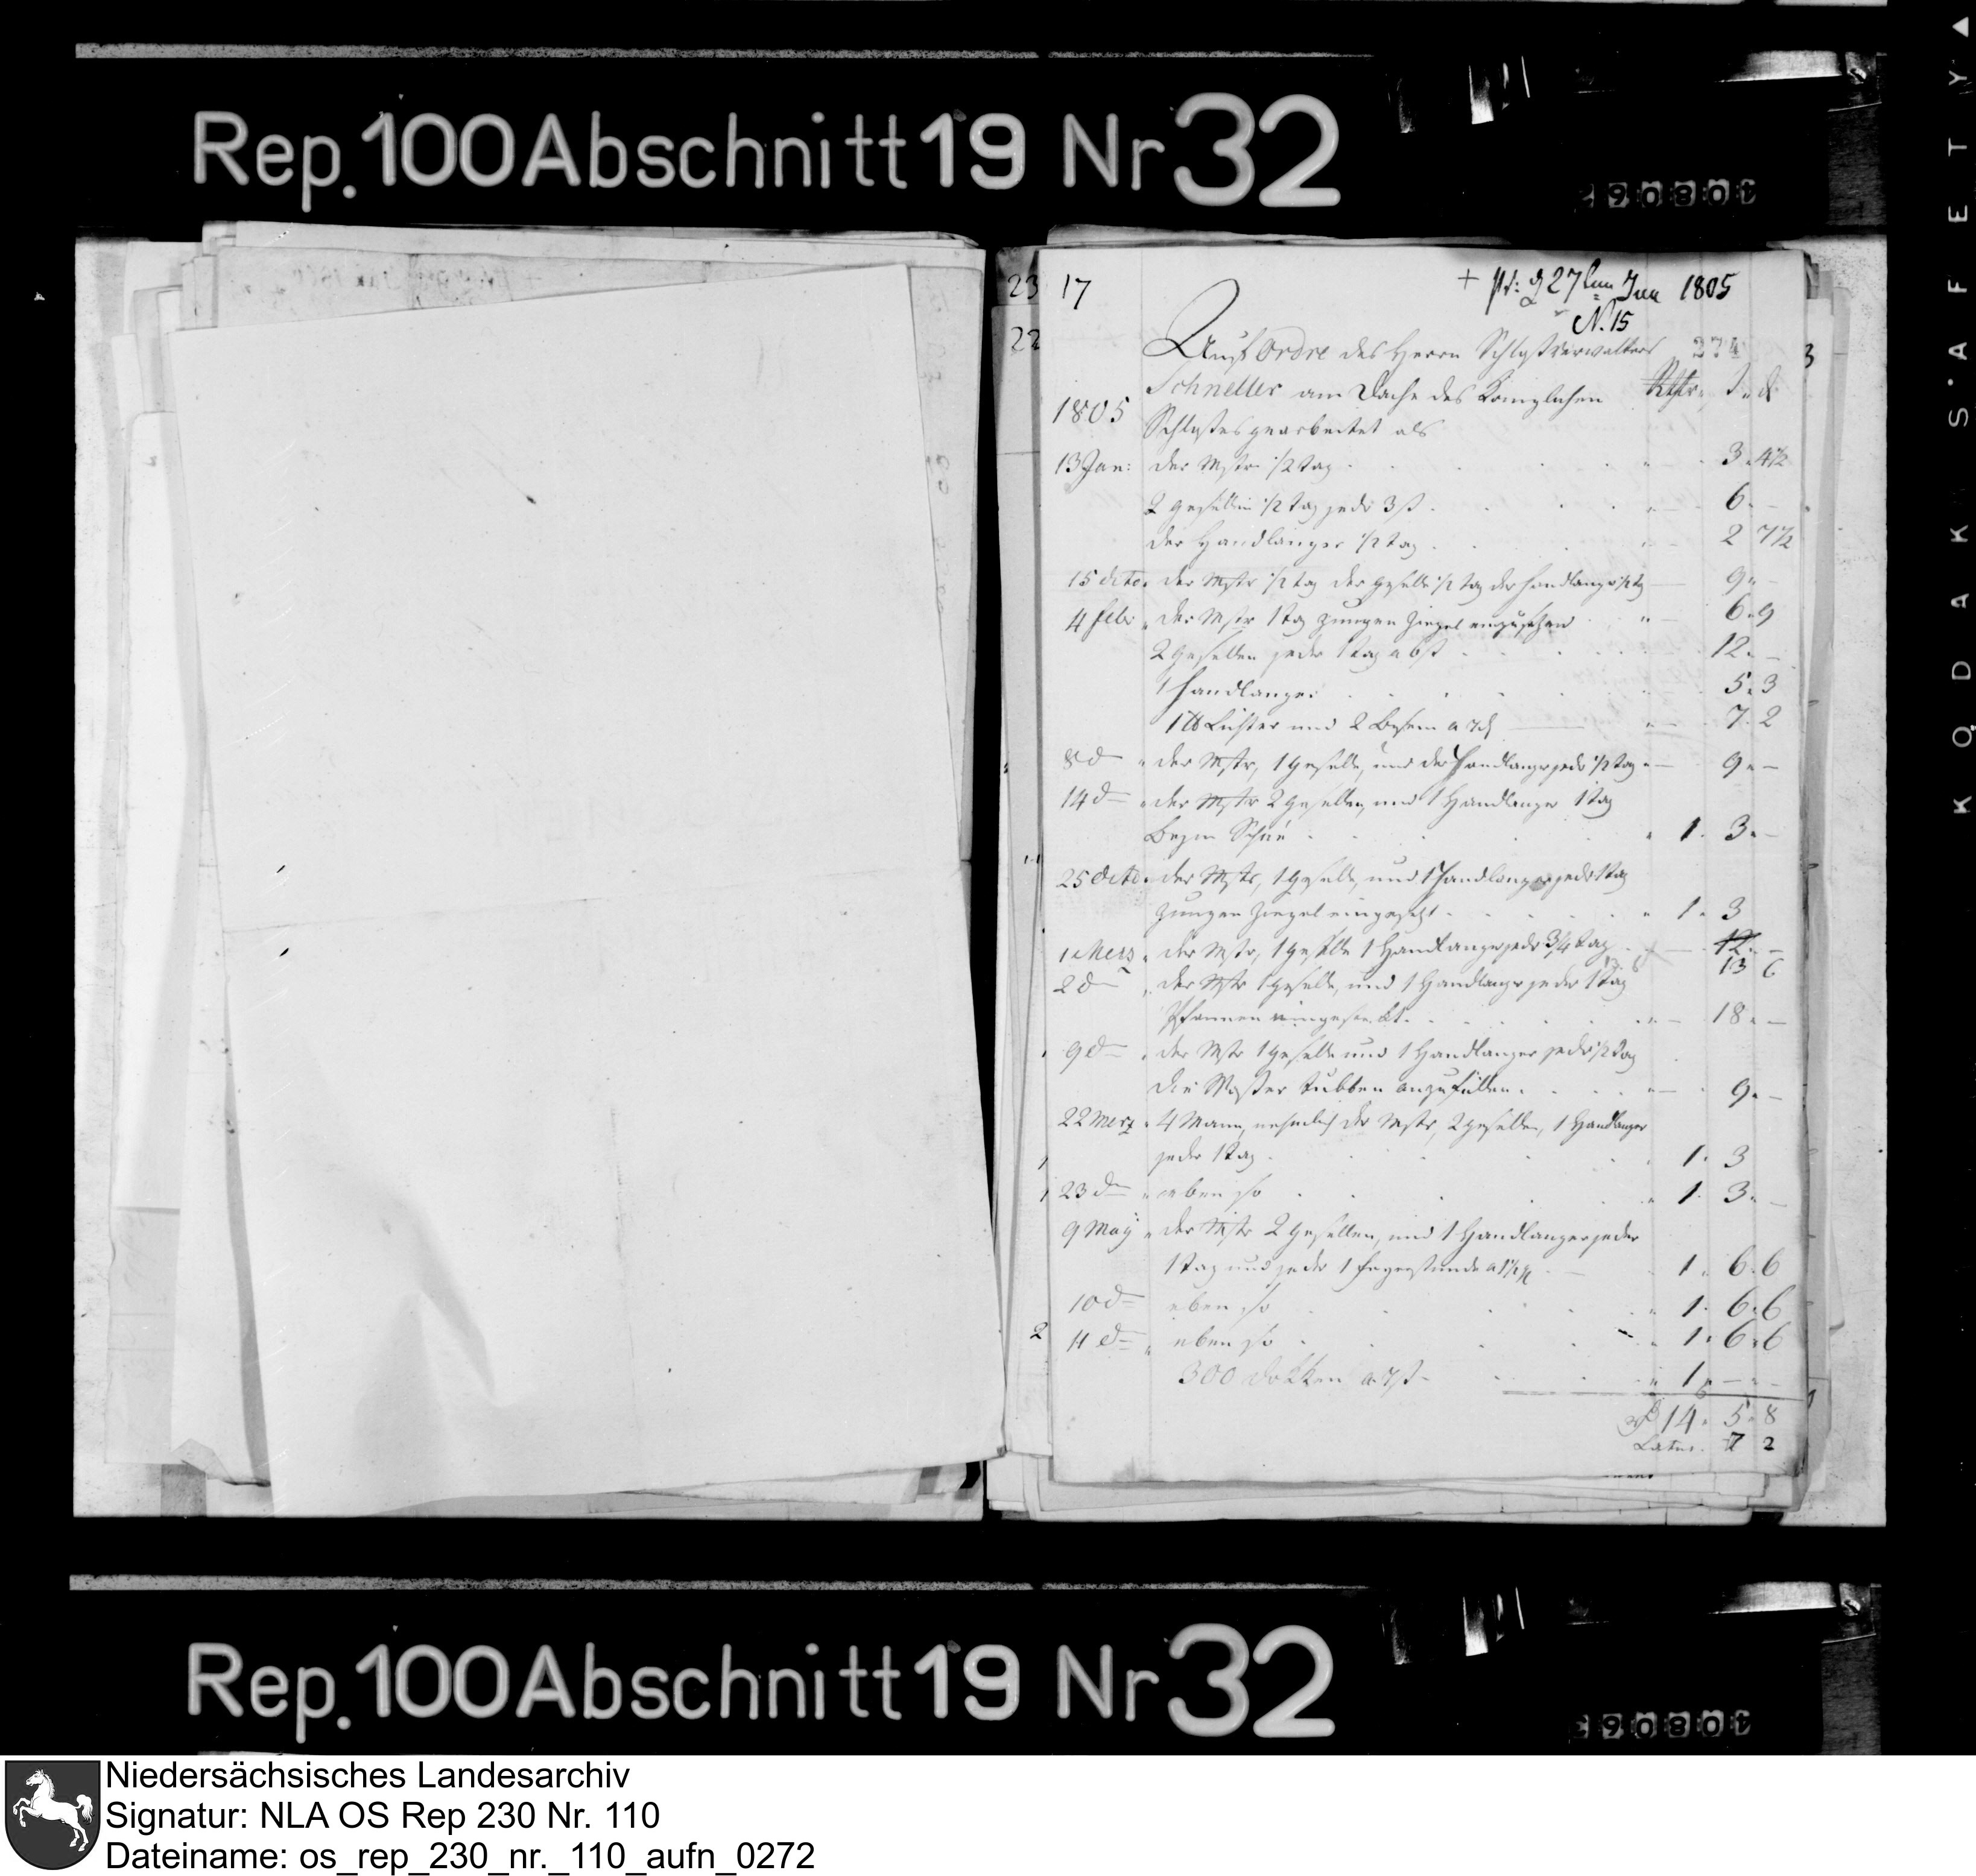 Rep. 100 Abschnitt 19 Nr 32
290801
KODAK SAFETY
23
22
17
27 Jun 1805
N. 15
Auf Ordre des Herrn Schloßverwalters 274
Schneller am Dache des Königlichen Rthlr ß d
1805 Schloßes gearbeitet als
13 Jan: der Mstr 1/2 tag 3 4 1/2
2 gesellen 1/2 tag jeder 3 ß 6 -
der Handlanger 1/2 tag 2 7 1/2
15 dito der Mstr 1/2 tag der geselle 1/2 tag der handlanger 1/2 tg 9 -
4 febr der Mstr 1 tag Ziegel einzusetzen 6 9
2 gesellen jeder 1 tag a 6 ß 12 -
1 handlanger 5 3
1 lb Lichter und 2 Besem a 7 d 7 2
8 d der Mstr, 1 geselle, und der handlanger jeder 1/2 tag 9 -
14 d der Mstr 2 gesellen, und 1 Handlanger 1 tag
1 3 -
25 dito der Mstr, 1 geselle, und 1 handlanger jeder 1 tag
Ziegel eingesetzt 1 3
1 Merz der Mstr, 1 geselle 1 Handlanger jeder 3/4 tag 12 -
13 6
2 d der Mstr 1 geselle, und 1 Handlanger jeder 1 tag
Pfannen 18 -
9 d der Mstr 1 geselle und 1 Handlanger jeder 1/2 tag
die Waßer tubben anzufüllen 9 -
22 Merz 4 Mann, nehmlich der Mstr, 2 gesellen, 1 Handlanger
jeder 1 tag 1 3
23 d eben so 1 3 -
9 May der Mstr 2 gesellen, und 1 Handlanger jeder
1 tag und jeder 1 1 6 6
10 d eben so 1 6 6
11 d eben so 1 6 6
300 dokken a 7 ß 1 - -
14 5 8
Latus 7 2
Rep. 100 Abschnitt 19 Nr 32
Niedersächsisches Landesarchiv
Signatur: NLA OS Rep 230 Nr. 110
Dateiname: os_rep_230_nr._110_aufn_0272